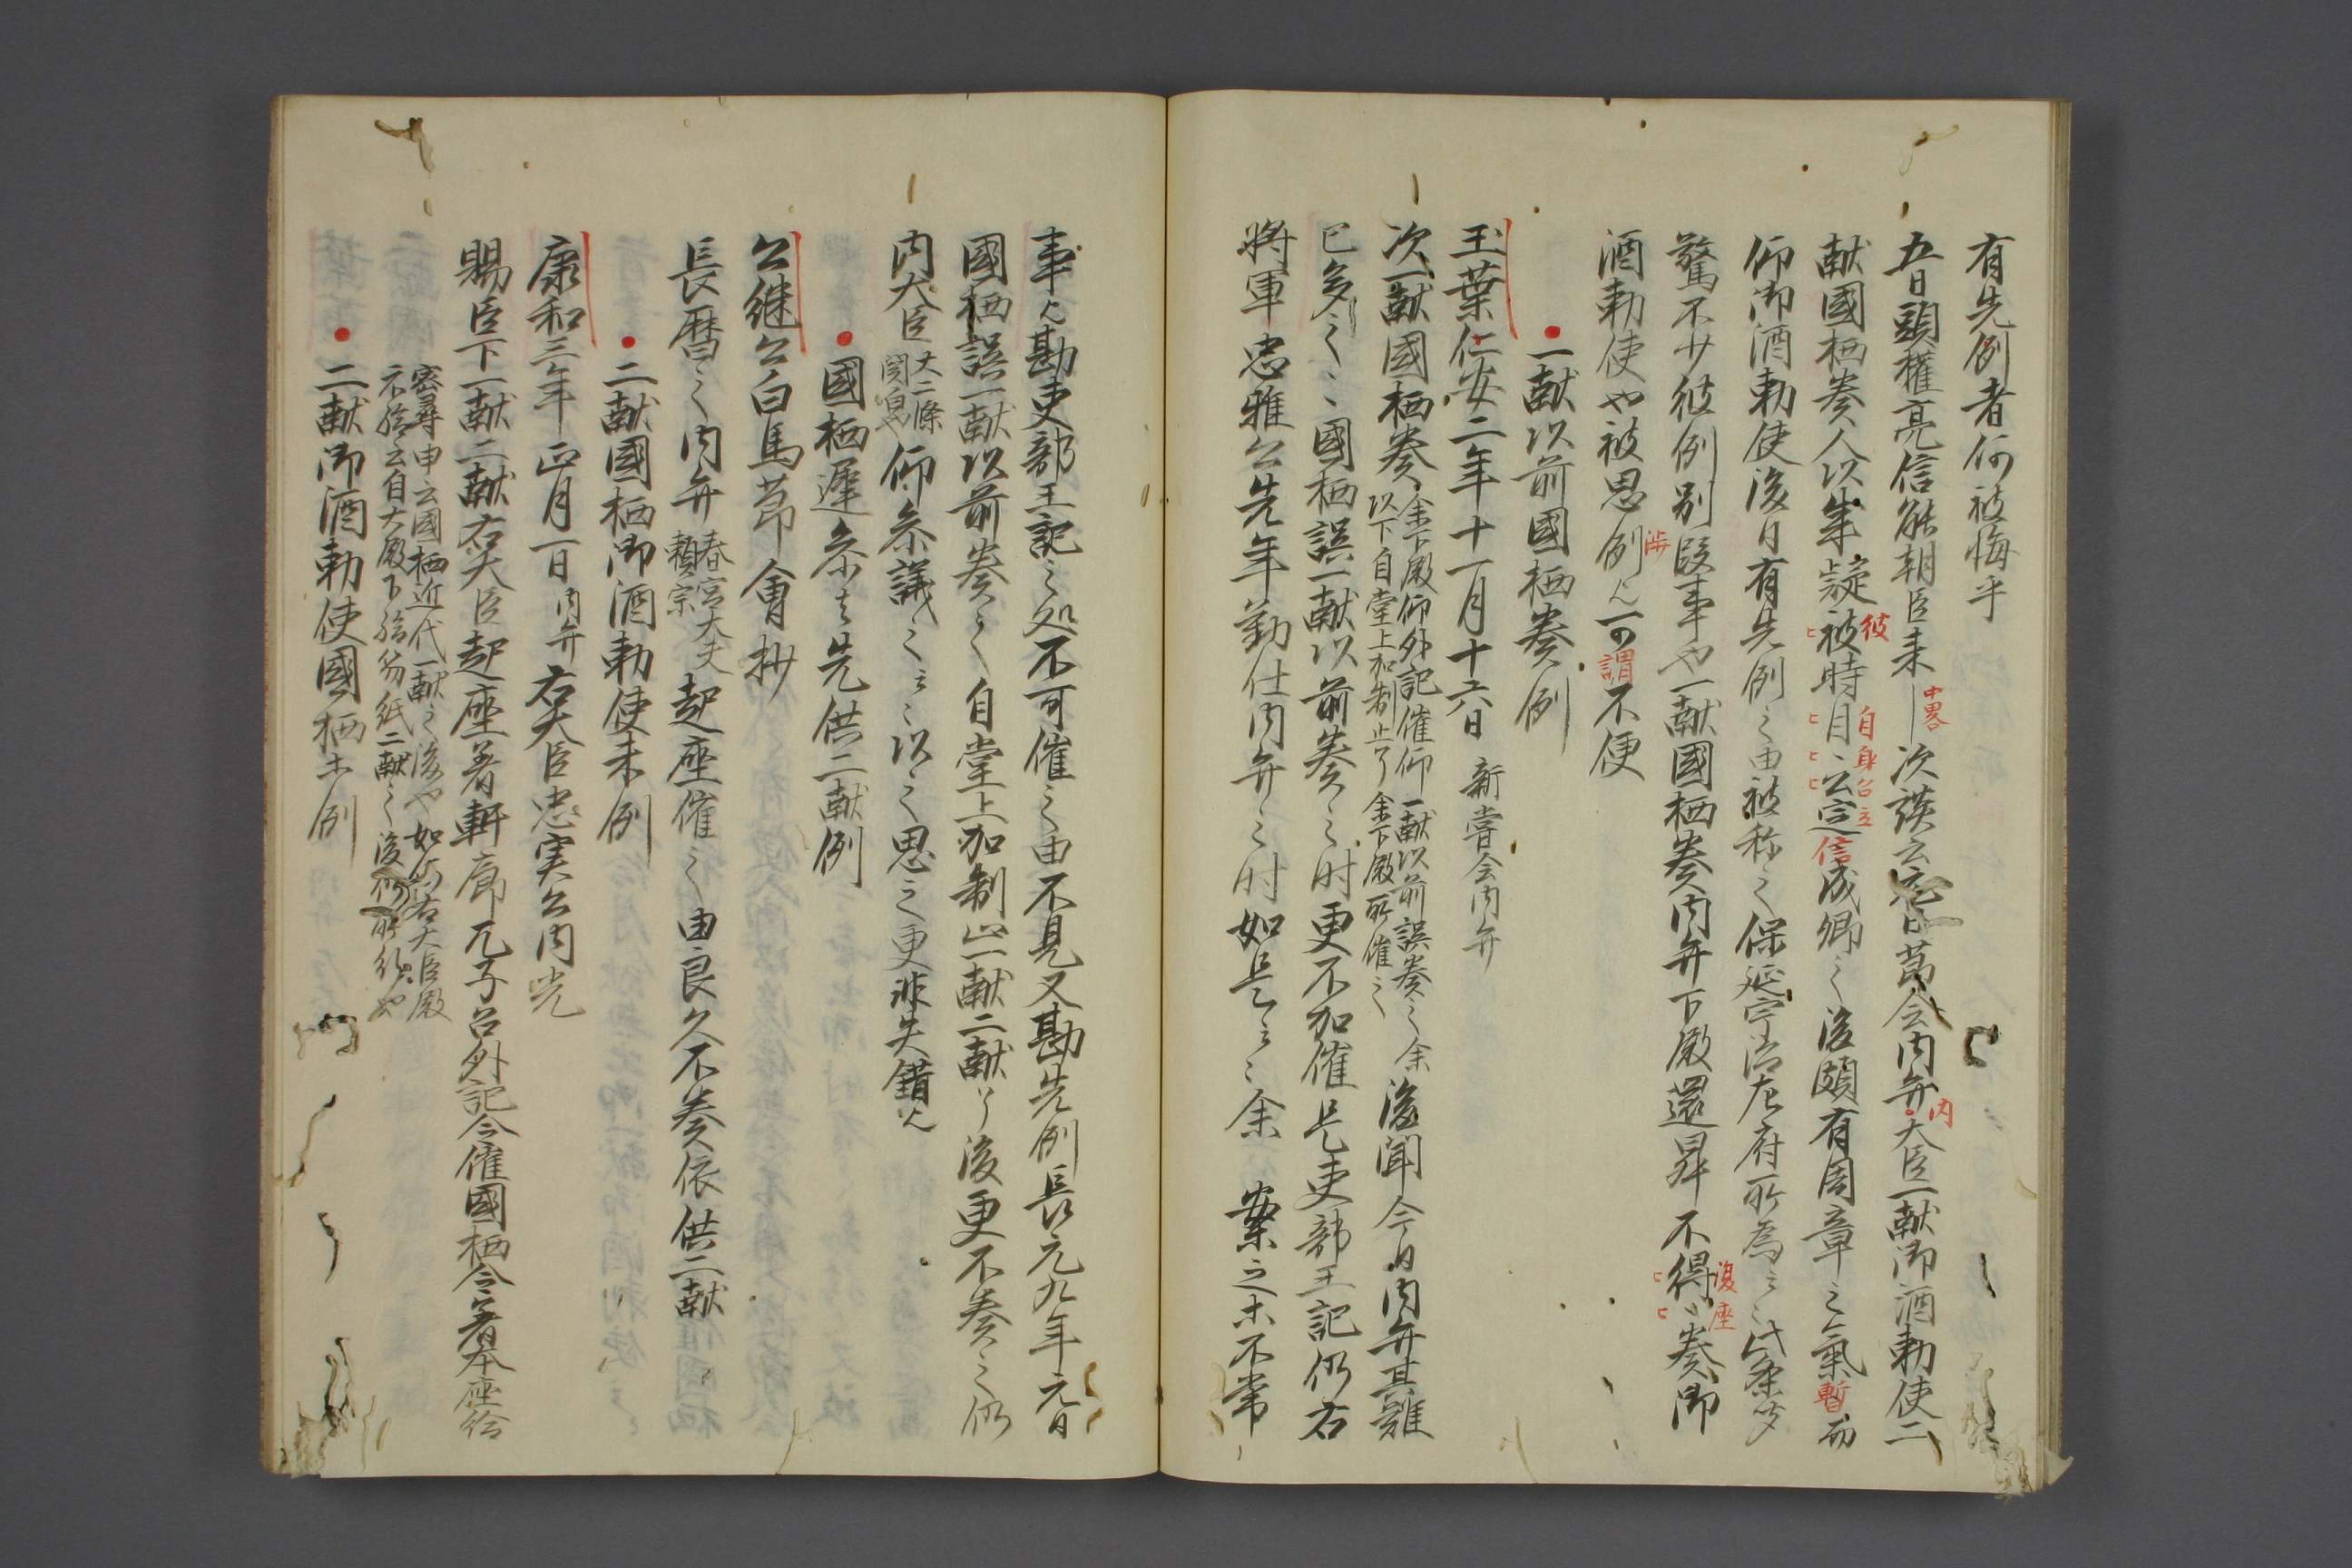 有先例者何被悔乎
五日頭權亮信能朝臣来 中畧 次談云 節会内弁内大臣一献御酒勅使二
献國栖奏人以成疑彼被時自身公定信成卿云後頗有周章之氣暫而
仰御酒勅使後日有先例之由被称之保延宇治左府所為云々此条
驚不少彼例別段事也一献國栖奏内弁下殿還昇不得復座奏御
酒勅使也被思例可謂不便
一献以前國栖奏例
玉葉仁安二年十一月十六日 新嘗会内弁
次一献國栖奏余下殿仰外記催仰一献以前誤奏々余
以下自堂上和制止了余下殿所催之
後聞今日内弁其難
已多云々國栖誤一献以前奏之时更不加催是吏部王記仍右
將軍忠雅公先年勤仕内弁之时如是云々余案之太不常
事也勘吏部王記之処不可催之由不見又勘先例長元九年元日
國栖誤一献以前奏之自堂上加制止一献二献了後更不奏之仍
内大臣大二條
関白也
仰参議々々云々以之思之更非失錯也
國栖遲参者先供二献例
公継公白馬節會抄
長暦云内弁春宮大夫
頼宗
起座催之由良久不奏依供二献
二献國栖御酒勅使未例
康和三年正月一日内弁右大臣忠実公内覚
賜臣下一献二献右大臣起座着軒廊兀子召外記令催國栖令着本座給
密尋申云國栖近代一献之後也如何右大臣殿
不給云自大殿下給紙二献之後所行也
二献御酒勅使國栖未例